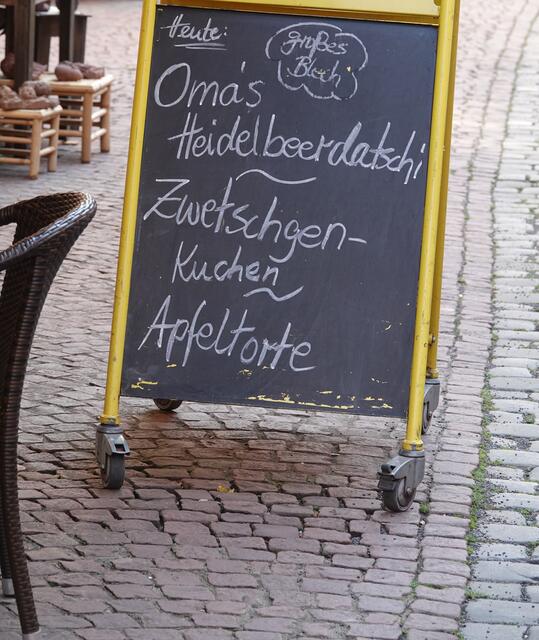 Heute:
großes
Blech
Oma's
Heidelbeerdatschi
Zwetschgen-
Kuchen
Apfeltorte